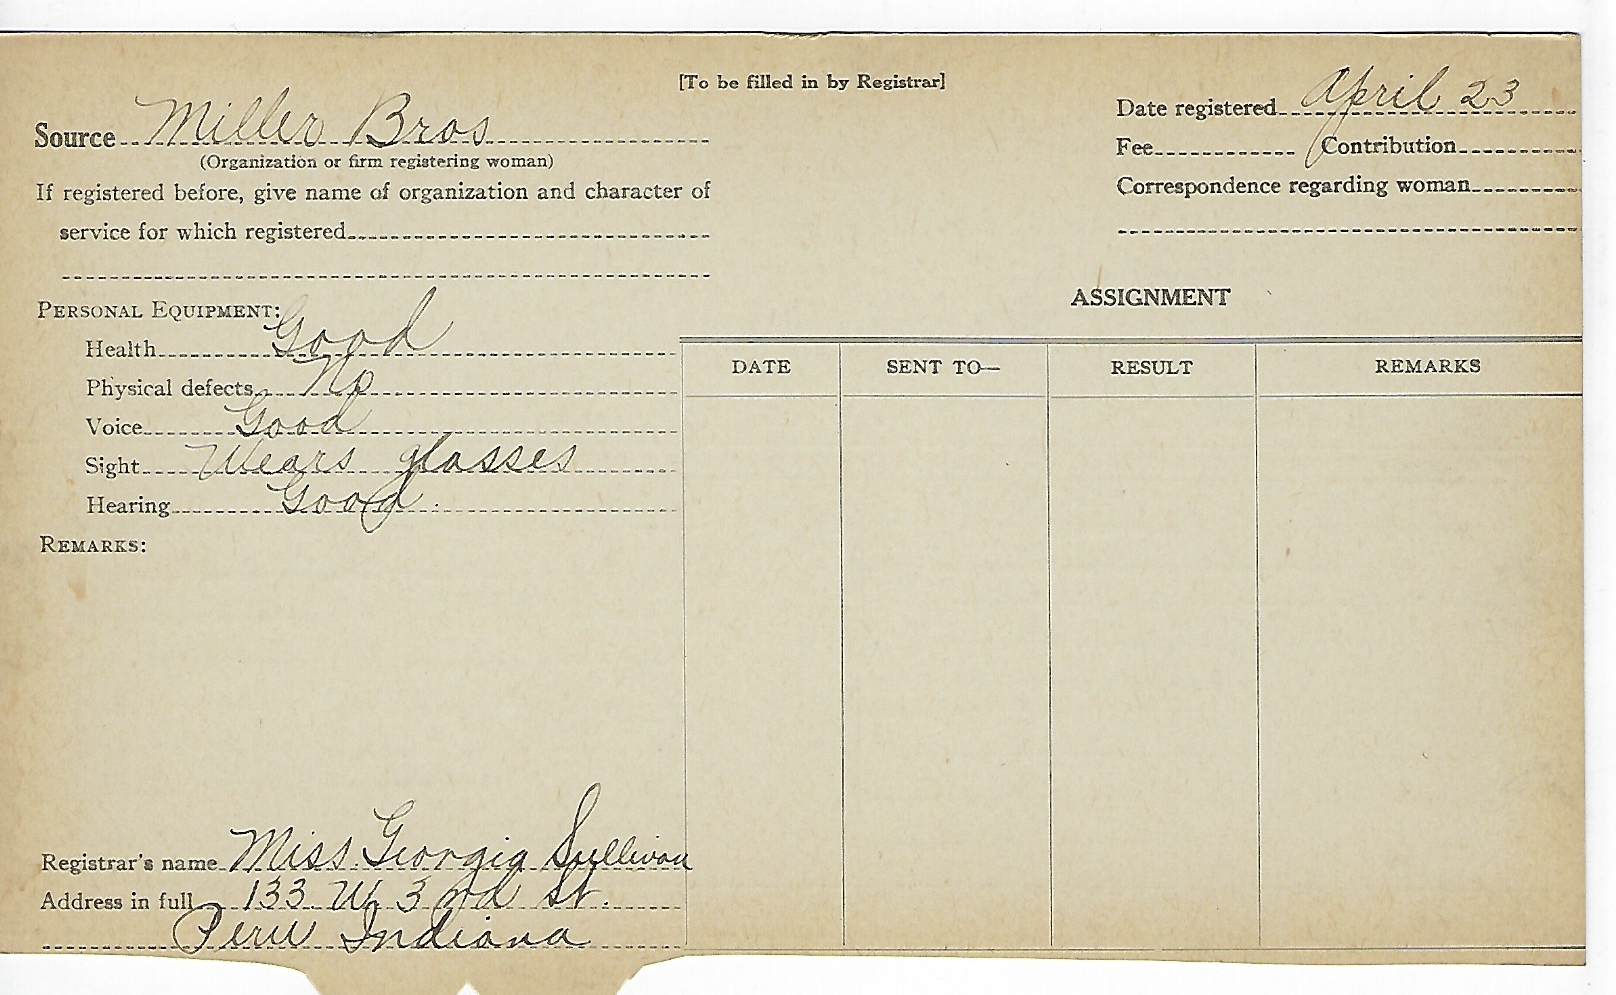 [To be filled in by Registrar]
Source Miller Bros
(Organization or firm registering woman)
If registered before, give name of organization and character of
service for which registered
Date registered April 23
Fee Contribution
Correspondence regarding woman
PERSONAL EQUIPMENT:
Health Good
Physical defects No
Voice Good
Sight Wears glasses
Hearing Good
REMARKS:
ASSIGNMENT
DATE SENT TO— RESULT REMARKS
Registrar's name Miss. Georgia Sullivan
Address in full 133 W. 3rd St.
Peru Indiana